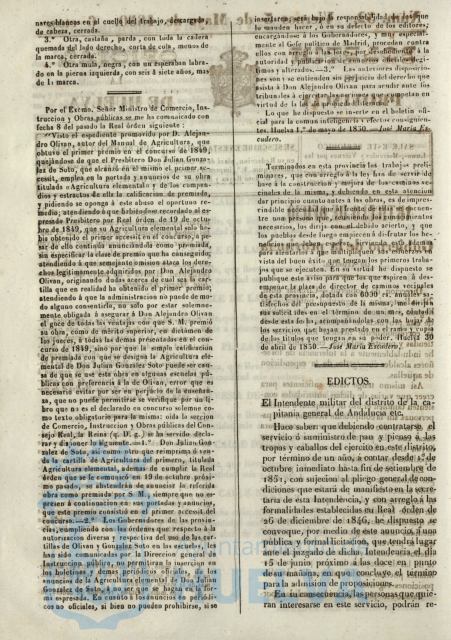 nares blancos en el cuello del trabajo, descargada
de cabeza, cerrada.
3.ª Otra, castaña, parda, con toda la cadera
quemada del lado derecho, corta de cola, menos de
la marca, cerrada.
4.ª Otra mula, negra, con un esparaban labra-
do en la pierna izquierda, con seis á siete años, mas
de la marca.
Por el Excmo. Señor Ministro de Comercio, Ins-
truccion y Obras públicas se me ha comunicado con
fecha 8 del pasado la Real órden siguiente:
"Visto el espediente promovido por D. Alejan-
dro Olivan, autor del Manual de Agricultura, que
obtuvo el primer premio en el concurso de 1849,
quejándose de que el Presbítero Don Julian Gonza-
lez de Soto, que alcanzó en el mismo el primer ac-
cessit, emplea en la portada y anuncios de su obra
titulada Agricultura elemental y de los compen-
dios y estractos de ella la calificacion de premiada,
y pidiendo se oponga á este abuso el oportuno re-
medio; atendiendo á que habiéndose recordado al es-
presado Presbítero por Real órden de 19 de octu-
bre de 1849, que su Agricultura elemental solo ha-
bia obtenido el primer accessit en el concurso, á pe-
sar de ello continúa anunciándola como premiada,
sin especificar la clase de premio que ha conseguido;
atendiendo á que semejante omision ataca los dere-
chos legítimamente adquiridos por Don Alejandro
Olivan, originando dudas acerca de cual sea la car-
tilla que en realidad ha obtenido el primer premio;
atendiendo á que la administracion no puede de mo-
do alguno consentirlo, no solo por estar solemne-
mente obligada á asegurar á Don Alejandro Olivan
el goce de todas las ventajas con que S. M. premió
su obra, como de mérito superior, en dictámen de
los jueces, á todas las demas presentadas en el con-
curso de 1849, sino por que la simple calificacion
de premiada con que se designa la Agricultura ele-
mental de Don Julian Gonzalez Soto puede ser cau-
sa de que se use esta obra en algunas escuelas pú-
blicas con preferencia á la de Olivan, error que es
necesario evitar por ser en perjuicio de la enseñan-
za, que no puede permitirse se verifique por un li-
bro que no es el declarado en concurso solemne co-
mo texto obligatorio para la misma; oida la seccion
de Comercio, Instruccion y Obras públicas del Con-
sejo Real, la Reina (q. D. g.) se ha servido decla-
rar y disponer lo siguiente.—1.º Don Julian Gon-
zalez de Soto, así como otro que reimprima ó ven-
da la cartilla de Agricultura del primero, titulada
Agricultura elemental, ademas de cumplir la Real
órden que se le comunicó en 19 de octubre próxi-
mo pasado, se abstendrá de anunciar la referida
obra como premiada por S. M. siempre que no es-
presen á continuacion en sus portadas y anuncios,
que este premio consistió en el primer accessit del
concurso.—2.º Los Gobernadores de las provin-
cias, cumpliendo con las órdenes que respecto á la
autorizacion diversa y respectiva del uso de las car-
tillas de Olivan y Gonzalez Soto en las escuelas, les
han sido comunicadas por la Direccion general de
Instruccion pública, no permitiran la insercion en
los boletines y demas periódicos oficiales, de los
anuncios de la Agricultura elemental de Don Julian
Gonzalez de Soto, á no ser que se hagan en la for-
ma espresada. En cuanto á los anuncios en periódi-
cos no oficiales, si bien no pueden prohibirse, si se
insertaren, será bajo la responsabilidad de los que
lo manden hacer, ó en su defecto de los editores,
encargándose á los Gobernadores, y muy especial-
mente al Gefe político de Madrid, procedan contra
ellos con arreglo á las leyes, por desobediencia á la
autoridad y publicacion de anuncios oficiales ilegí-
timos y alterados.—3.º Las anteriores disposicio-
nes son y se entienden sin perjuicio del derecho que
asista á Don Alejandro Olivan para acudir ante los
tribunales á ejercitar las acciones que le competan en
virtud de la ley de propiedad literaria.
Lo que he dispuesto se inserte en el boletin ofi-
cial para la comun inteligencia y efectos consiguien-
tes. Huelva 1.º de mayo de 1850.—José María Es-
cudero.
Terminados en esta provincia los trabajos preli-
minares, que con arreglo á la ley han de servir de
base á la construccion y mejora de los caminos ve-
cinales de la misma, y debiendo en esta atencion dar
principio cuanto antes á las obras, es de impres-
cindible necesidad que al frente de ellas se encuen-
tre una persona que, reuniendo los conocimientos
necesarios, las dirija con el debido acierto, y que
los pueblos desde luego empiecen á disfrutar los be-
neficios
para alentarlos á que multipliquen sus esfuerzos en
vista del buen éxito que tengan los primeros traba-
jos que se ejecuten. En su virtud he dispuesto se
publique este aviso para que los que aspiren á des-
empeñar la plaza de director de caminos vecinales
de esta provincia, dotada con 6000 rs. anuales sa-
tisfechos del presupuesto de la misma, me dirijan
sus solicitudes en el término de un mes, contado
desde esta fecha, acompañándolas con las hojas de
los servicios que hayan prestado en el ramo y copia
de los títulos que tengan en su poder. Huelva 30
de abril de 1850.—José María Escudero.
EDICTOS.
El Intendente militar del distrito de la ca-
pitanía general de Andalucía etc.
Hace saber: que debiendo contratarse el
servicio ó suministro de pan y pienso á las
tropas y caballos del ejército en este distrito,
por término de un año, á contar desde 1.º de
octubre inmediato hasta fin de setiembre de
1851, con sujecion al pliego general de con-
diciones que estará de manifiesto en la secre-
taría de esta Intendencia, y con arreglo á las
formalidades establecidas en Real órden de
26 de diciembre de 1846, he dispuesto se
convoque, por medio de este anuncio, á una
pública y formal licitacion, que tendrá lugar
ante el juzgado de dicha Intendencia el dia
15 de junio próximo á las doce en punto
de su mañana, en que concluye el término
para la admision de proposiciones.
En su consecuencia, las personas que quie-
ran interesarse en este servicio, podrán re-